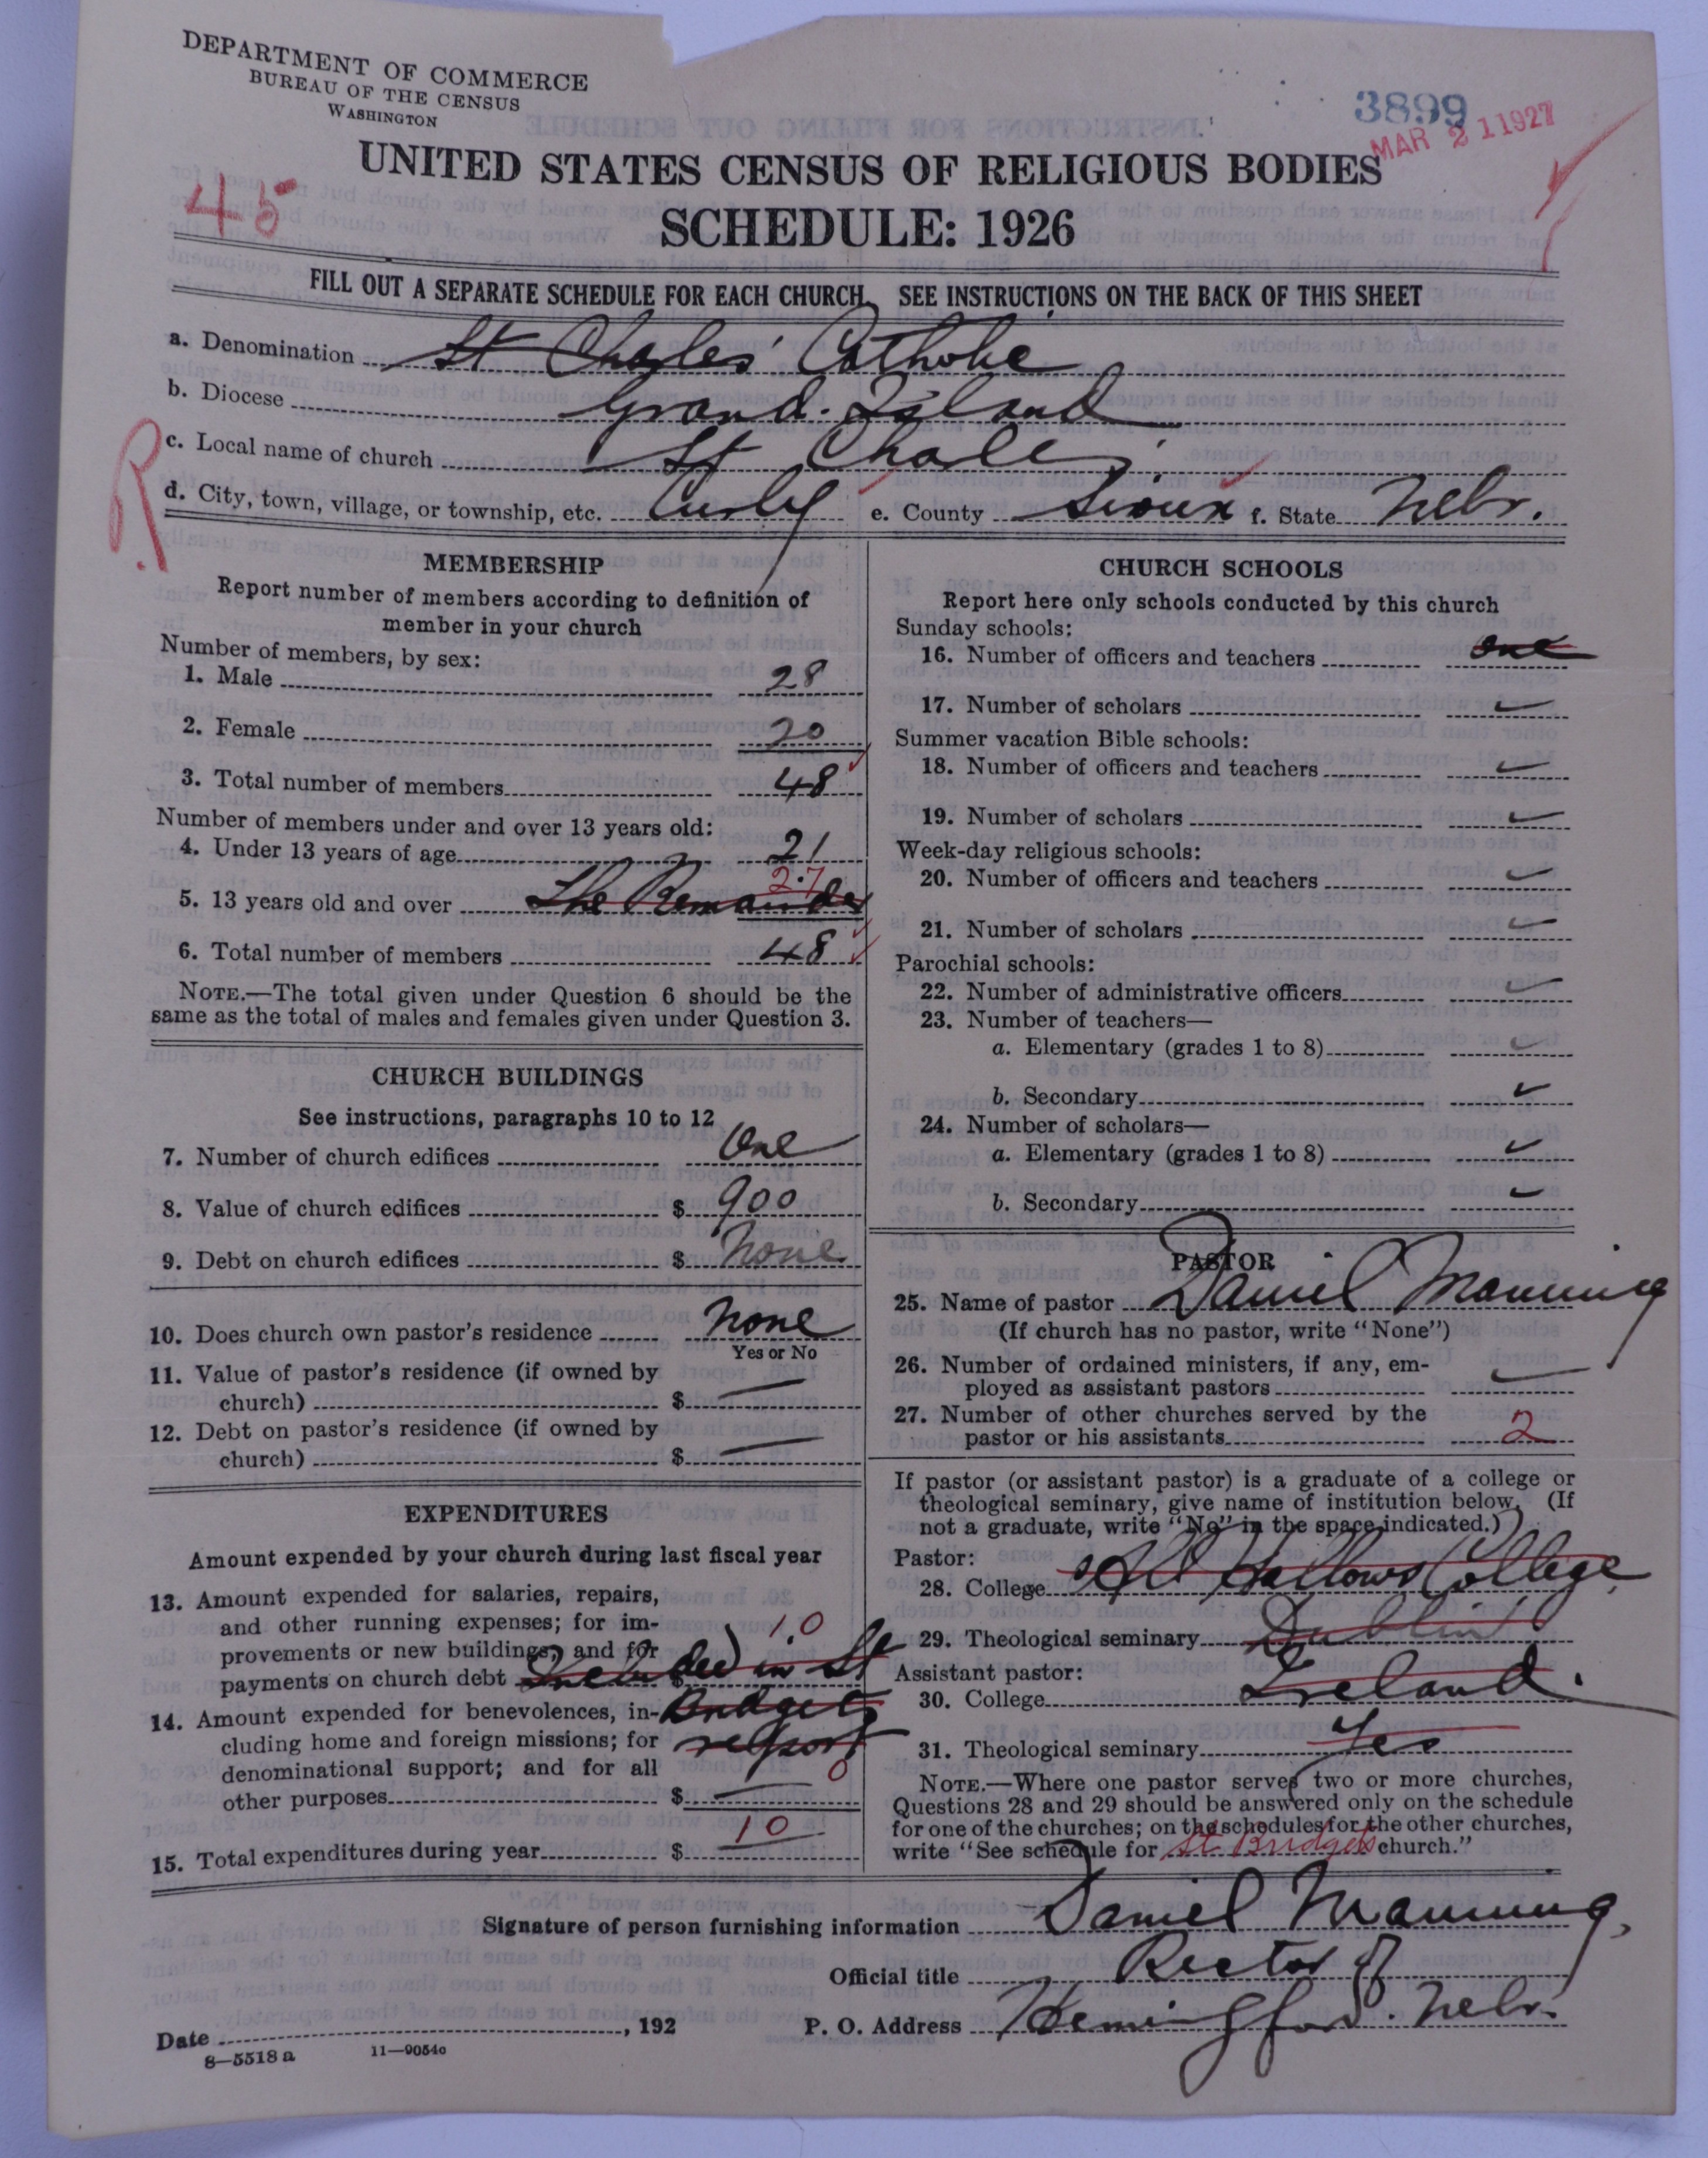 DEPARTMENT OF COMMERCE
BUREAU OF THE CENSUS
WASHINGTON
3899
MAR 21 1927
UNITED STATES CENSUS OF RELIGIOUS BODIES
45
SCHEDULE: 1926
FILL OUT A SEPARATE SCHEDULE FOR EACH CHURCH. SEE INSTRUCTIONS ON THE BACK OF THIS SHEET
a. Denomination St Charles' Catholic
b. Diocese Grand. Island
R
c. Local name of church St Charles
d. City, town, village, or township, etc. Curly e. County Sioux f. State Nebr.
MEMBERSHIP
Report number of members according to definition of
member in your church
Number of members, by sex:
1. Male 28
2. Female 20
3. Total number of members 48
Number of members under and over 13 years old:
4. Under 13 years of age 21
27
5. 13 years old and over The Remainder
6. Total number of members 48
NOTE.—The total given under Question 6 should be the
same as the total of males and females given under Question 3.
CHURCH BUILDINGS
See instructions, paragraphs 10 to 12
7. Number of church edifices One
8. Value of church edifices $ 900
9. Debt on church edifices $ None
10. Does church own pastor's residence None
Yes or No
11. Value of pastor's residence (if owned by
church) $ —
12. Debt on pastor's residence (if owned by
church) $ —
EXPENDITURES
Amount expended by your church during last fiscal year
13. Amount expended for salaries, repairs,
and other running expenses; for im-
provements or new buildings; and for
payments on church debt $ Included in St
10
14. Amount expended for benevolences, in-
cluding home and foreign missions; for
denominational support; and for all
other purposes $ —
Bridgets
report
0
15. Total expenditures during year $ 10
CHURCH SCHOOLS
Report here only schools conducted by this church
Sunday schools:
16. Number of officers and teachers one
17. Number of scholars ✓
Summer vacation Bible schools:
18. Number of officers and teachers ✓
19. Number of scholars ✓
Week-day religious schools:
20. Number of officers and teachers ✓
21. Number of scholars ✓
Parochial schools:
22. Number of administrative officers ✓
23. Number of teachers—
a. Elementary (grades 1 to 8) ✓
b. Secondary ✓
24. Number of scholars—
a. Elementary (grades 1 to 8) ✓
b. Secondary ✓
PASTOR
25. Name of pastor Daniel Manning
(If church has no pastor, write "None")
26. Number of ordained ministers, if any, em-
ployed as assistant pastors ✓
27. Number of other churches served by the
pastor or his assistants 2
If pastor (or assistant pastor) is a graduate of a college or
theological seminary, give name of institution below. (If
not a graduate, write "No" in the space indicated.)
Pastor:
28. College All Hallows College
29. Theological seminary Dublin
Assistant pastor:
30. College Ireland.
31. Theological seminary Yes
NOTE.—Where one pastor serves two or more churches,
Questions 28 and 29 should be answered only on the schedule
for one of the churches; on the schedules for the other churches,
write "See schedule for St. Bridgets church."
Signature of person furnishing information Daniel Manning,
Official title Rector of
Date , 192 P. O. Address Hemingford. Nebr.
8—5518 a 11—9054c